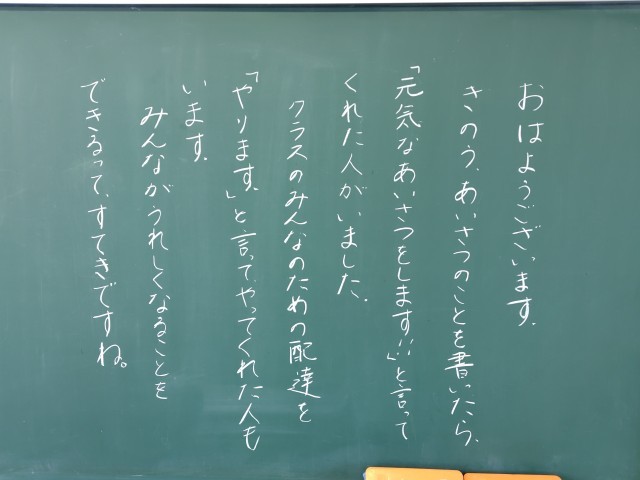 おはようございます。
きのう、あいさつのことを書いたら、
「元気なあいさつをします!!」と言って
くれた人がいました。
クラスのみんなのための配達を
「やります。」と言って、やってくれた人も
います。
みんながうれしくなることを
できるって、すてきですね。